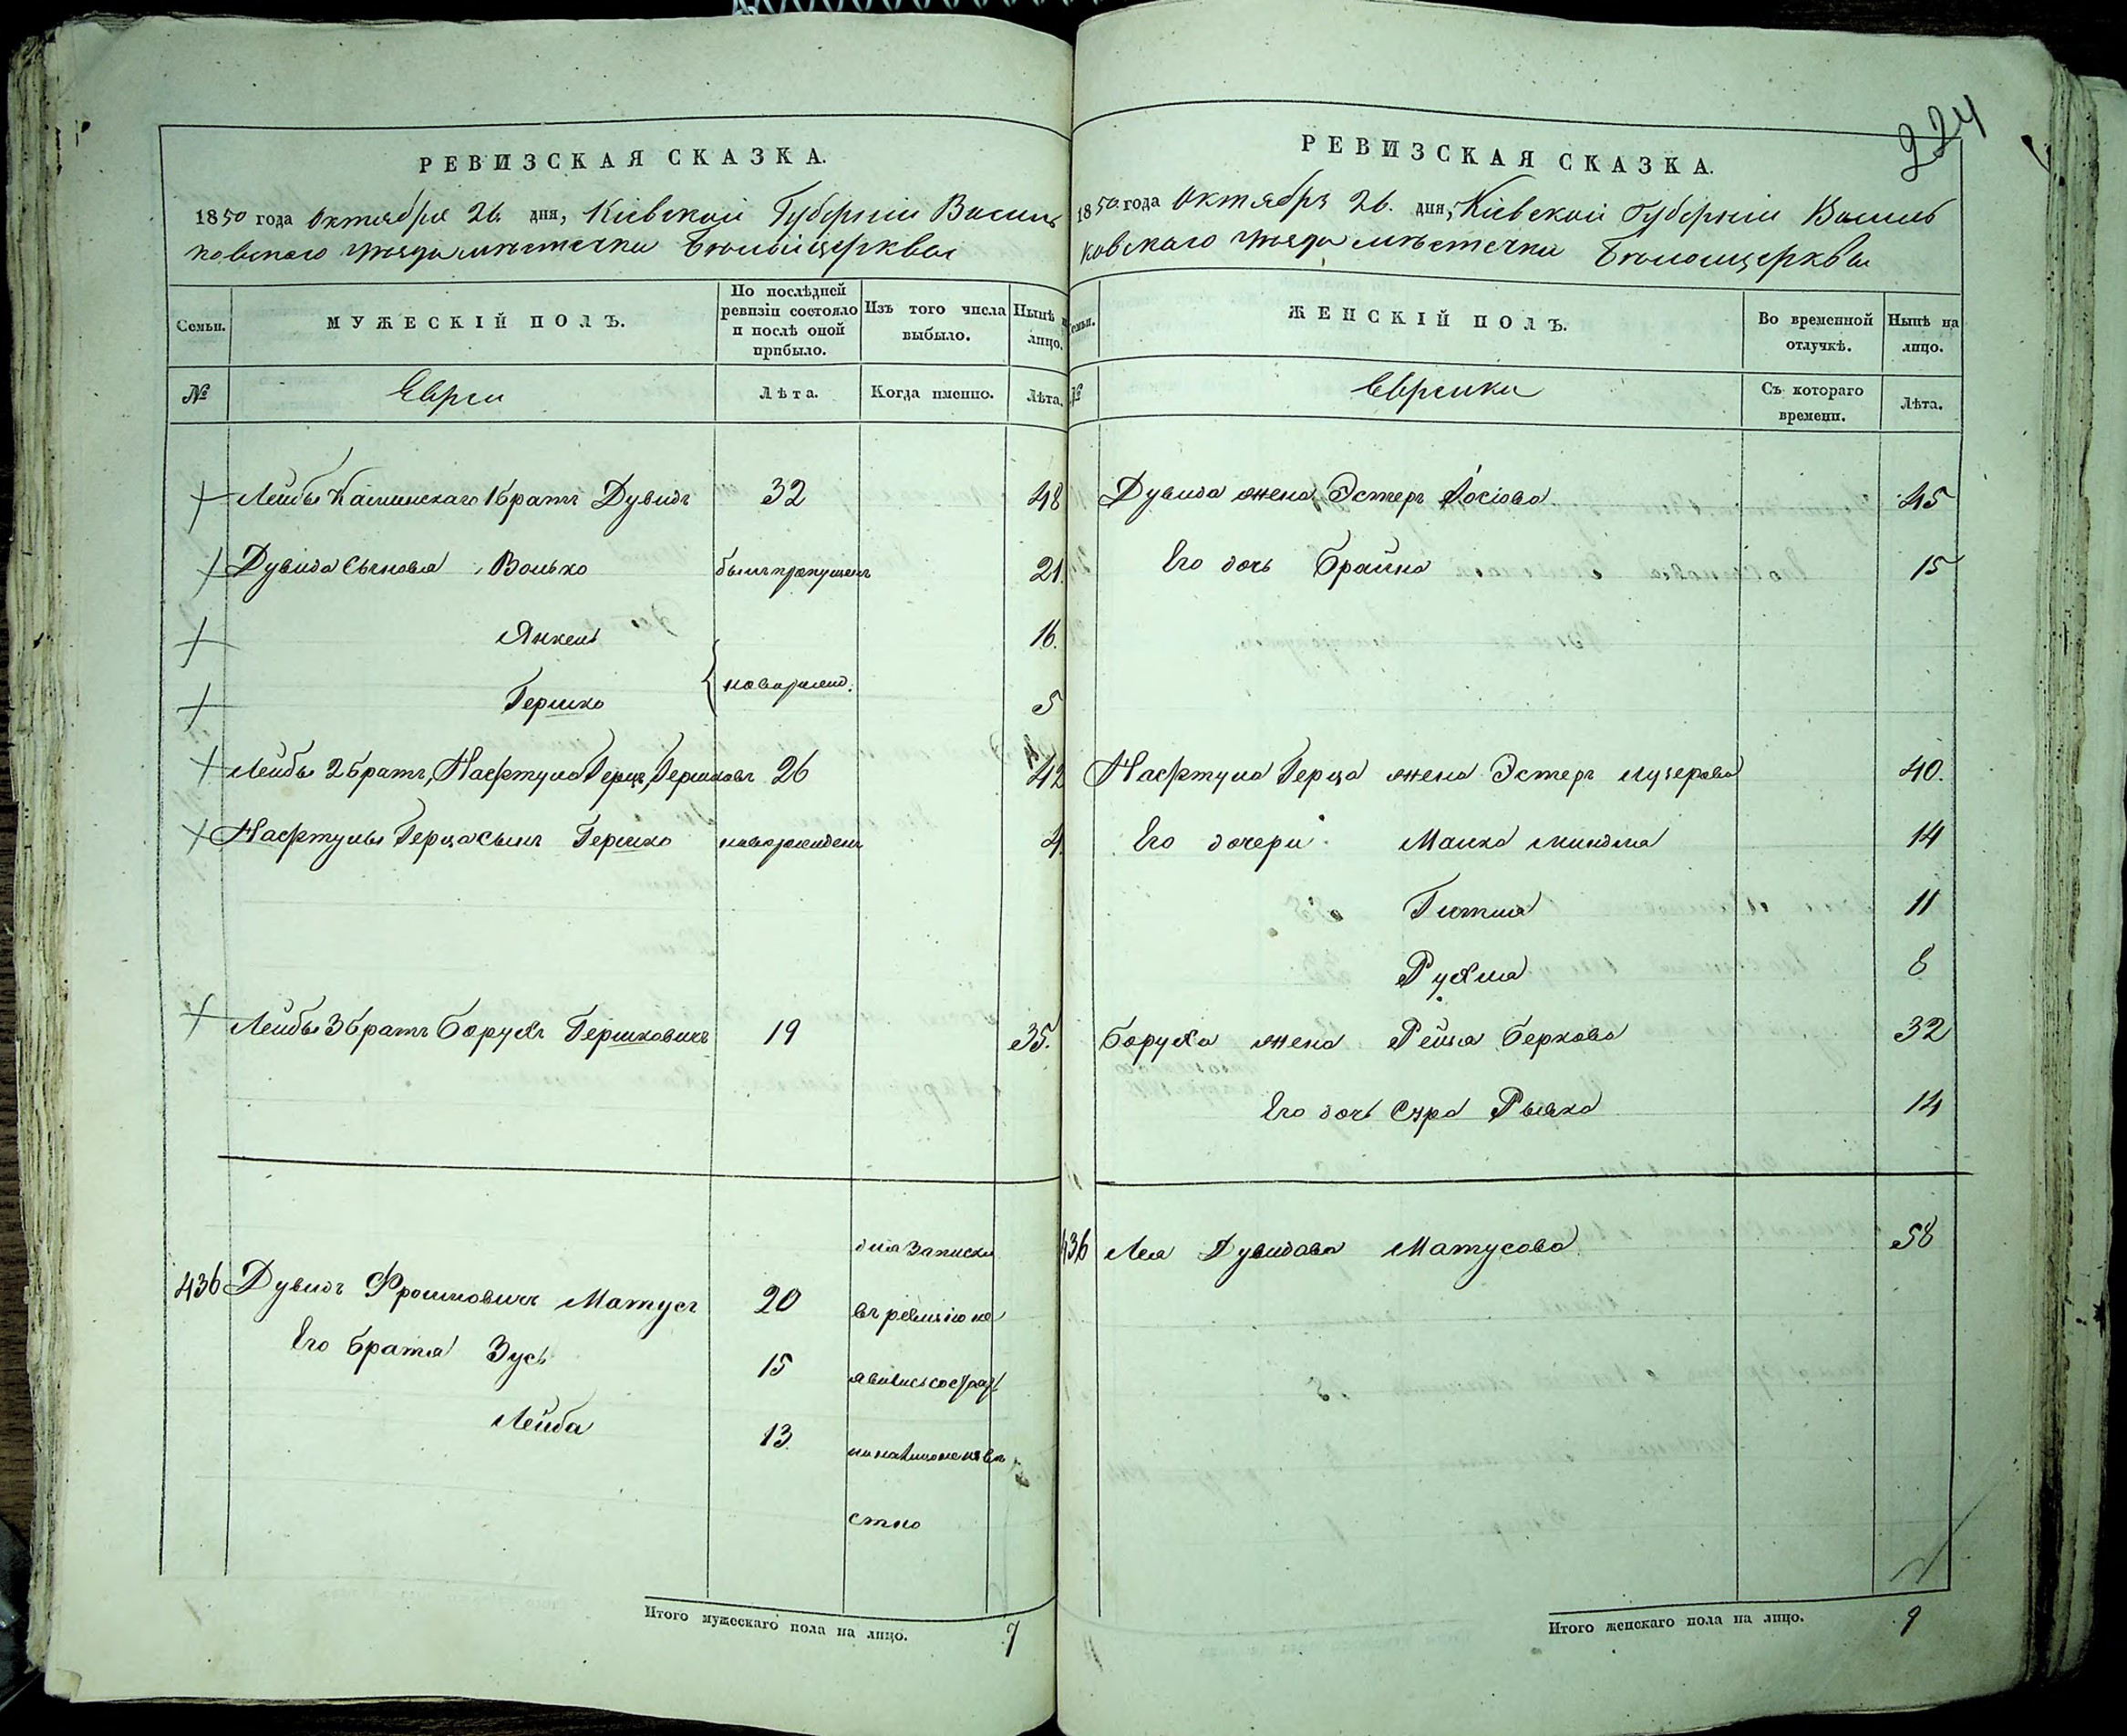 РЕВИЗСКАЯ СКАЗКА.
1850 года Октября 26 дня, Кіевской Губерніи Василь
ковскаго уѣзда мѣстечка Бѣлойцеркви
Семьи.
МУЖЕСКІЙ ПОЛЪ.
По послѣдней ревизіи состояло и послѣ оной прибыло.
Изъ того числа выбыло.
Нынѣ на лицо.
№
Евреи
Лѣта.
Когда именно.
Лѣта.
Лейбы Каминскаго 1 братъ Дувидъ 32 48
Дувида сыновья Волько былъ пропущенъ 21.
Янкель 16.
новорожд.
Гершко 5
Лейбы 2 братъ, Нафтула Герцъ Гершковъ 26 42
Нафтулы Герца сынъ Гершко новорожденъ 4.
Лейбы 3 братъ Борухъ Гершковичъ 19 35.
436 Дувидъ Фроимовичъ Матусъ 20
Его братья Зусь 15
Лейба 13
для записки
въ ревизію не
явились
неизвѣ
стно
Итого мужескаго пола на лицо. 7
224
РЕВИЗСКАЯ СКАЗКА.
1850 года Октября 26. дня, Кіевской Губерніи Василь
ковскаго уѣзда мѣстечка Бѣлоцеркви
Семьи.
ЖЕНСКІЙ ПОЛЪ.
Во временной отлучкѣ.
Нынѣ на лицо.
№
Еврейки
Съ котораго времени.
Лѣта.
Дувида жена Эстеръ Іосіова 45
Его дочь Брайна 15
Нафтула Герца жена Эстеръ Лузерова 40.
Его дочери Малка Миндля 14
Гитля 11
Рухля 8
Боруха жена Рейзя Беркова 32
Его дочь Сура Рывка 14
436 Лея Дувидова Матусова 58
Итого женскаго пола на лицо. 9